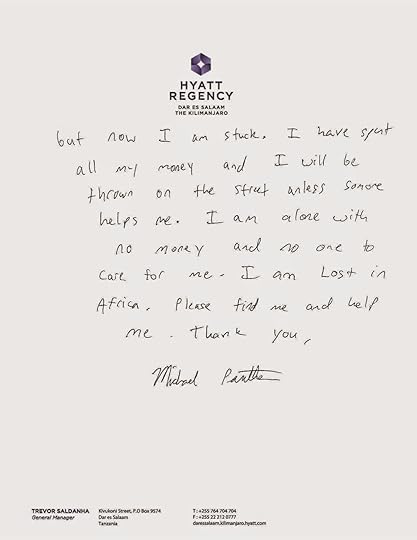 HYATT
REGENCY
DAR ES SALAAM
THE KILIMANJARO
but now I am stuck. I have spent
all my money and I will be
thrown on the street unless
helps me. I am alone with
no money and no one to
care for me. I am Lost in
Africa. Please find me and help
me. Thank you,
Michael
TREVOR SALDANHA
General Manager
Kivukoni Street, P.O Box 9574
Dar es Salaam
Tanzania
T: +255 764 704 704
F: +255 22 212 0777
daressalaam.kilimanjaro.hyatt.com